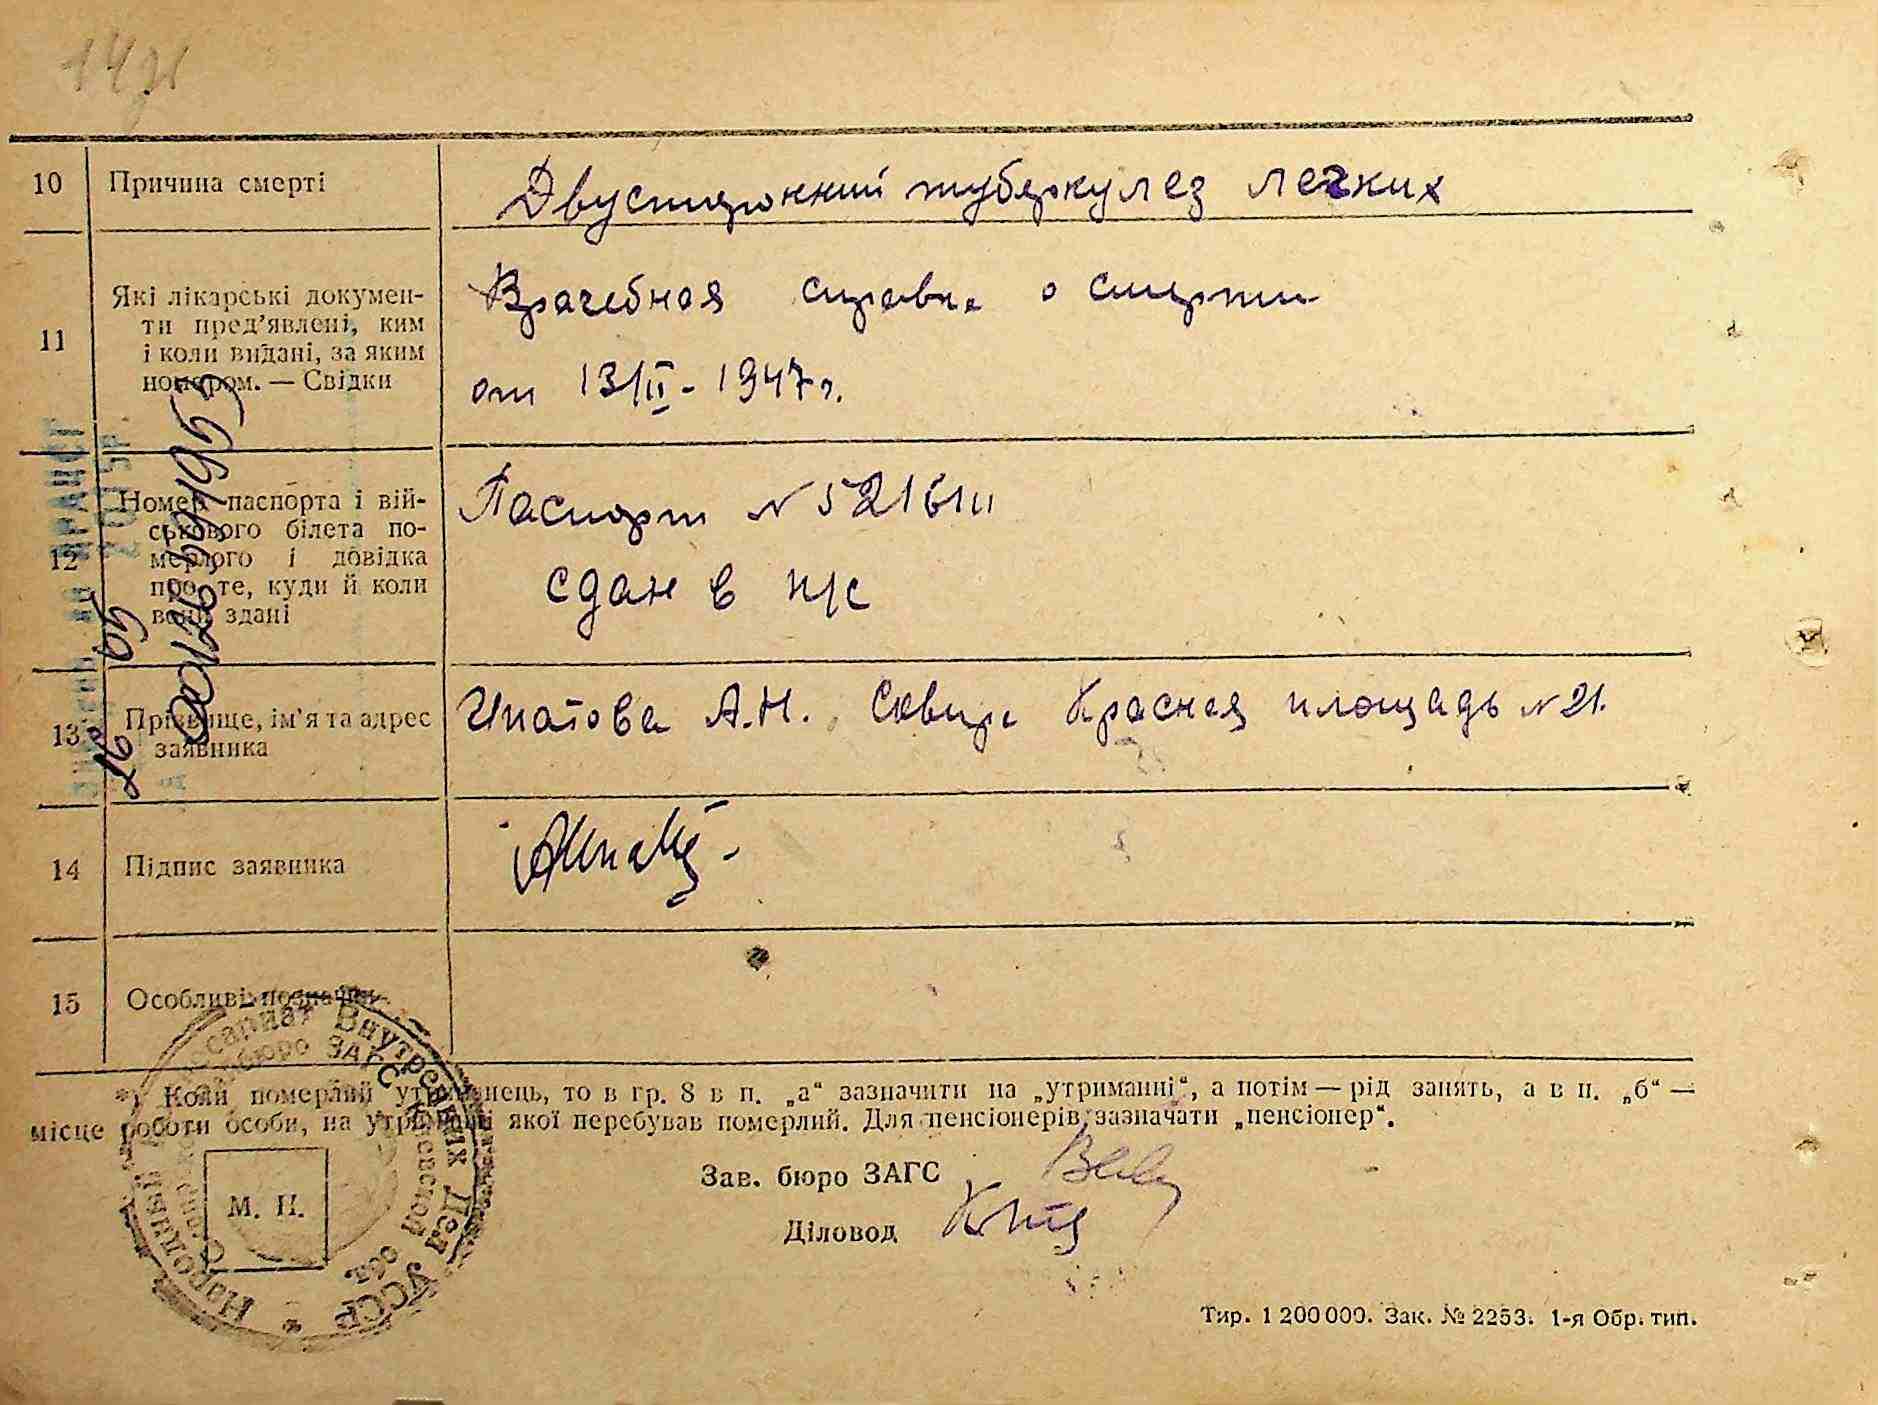 10 Причина смерті
Двусторонний туберкулез легких
11 Які лікарські докумен-
ти пред’явлені, ким
і коли видані, за яким
номером. — Свідки
Врачебная справка о смерти
от 13/II - 1947 г.
12 Номер паспорта і вій-
ськового білета по-
мерлого і довідка
про те, куди й коли
вони здані
Паспорт N 521611
сдан в п/с
13 Прізвище, ім’я та адрес
заявника
Ипатова А.Н. Сквира Красная площадь N 21.
14 Підпис заявника
15 Особливі позначки
*) Коли померлий утриманець, то в гр. 8 в п. „а“ зазначити на „утриманні“, а потім — рід занять, а в п. „б“ —
місце роботи особи, на утриманні якої перебував померлий. Для пенсіонерів зазначати „пенсіонер“.
Зав. бюро ЗАГС
Діловод
М. П.
Народный Комиссариат Внутренних Дел УССР
бюро ЗАГС Киевской обл.
Тир. 1 200 000. Зак. № 2253. 1-я Обр. тип.